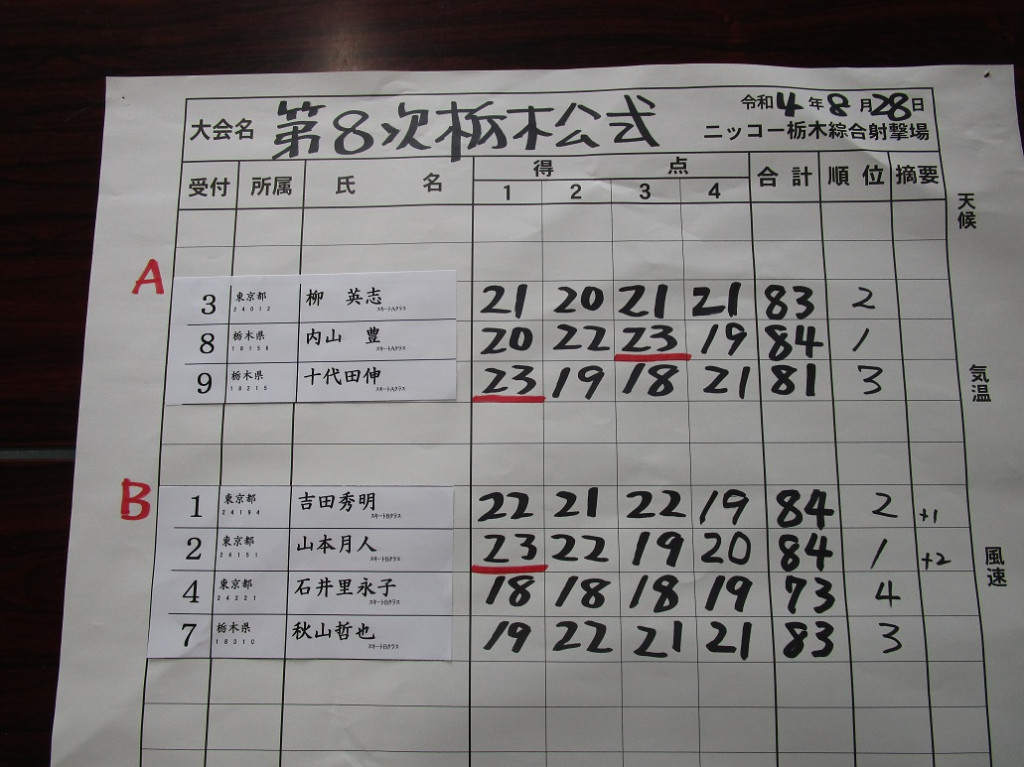 大会名 第8次栃木公式 令和4年8月28日
ニッコー栃木綜合射撃場
受付 所属 氏名 得点 合計 順位 摘要
1 2 3 4
天候
A
3 東京都 柳 英志 21 20 21 21 83 2
24012 スキートAクラス
8 栃木県 内山 豊 20 22 23 19 84 1
スキートAクラス
9 栃木県 十代田伸 23 19 18 21 81 3
18215 スキートAクラス
気温
B
1 東京都 吉田秀明 22 21 22 19 84 2 +1
24194 スキートBクラス
2 東京都 山本月人 23 22 19 20 84 1 +2
24151 スキートBクラス
風速
4 東京都 石井里永子 18 18 18 19 73 4
24221 スキートBクラス
7 栃木県 秋山哲也 19 22 21 21 83 3
18310 スキートBクラス